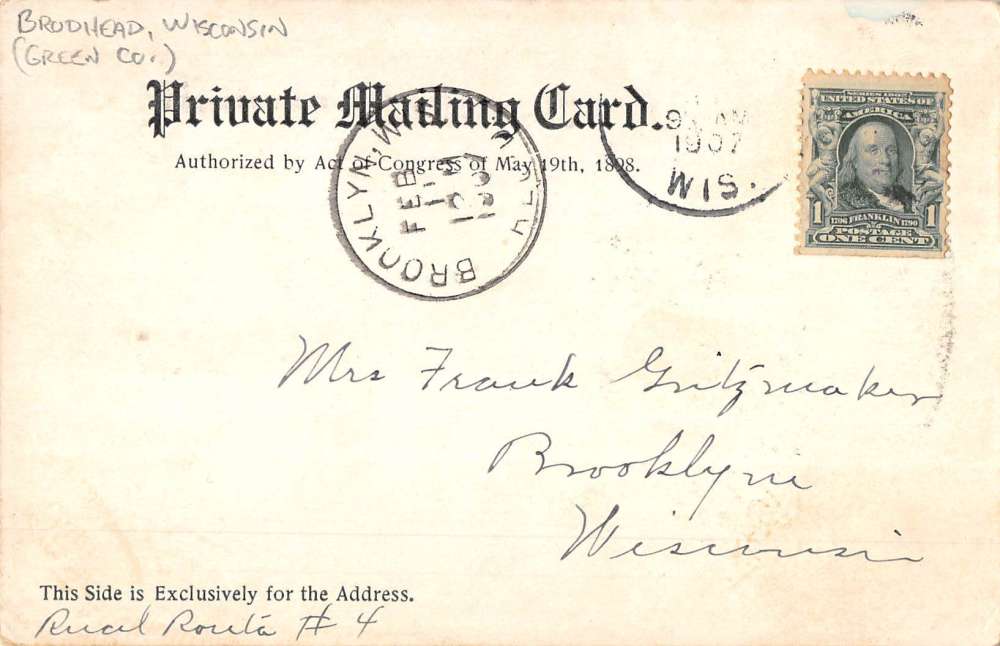 BRODHEAD, WISCONSIN
(GREEN CO.)
Private Mailing Card.
Authorized by Act of Congress of May 19th, 1898.
BROOKLYN, W
FEB
1907
9 AM
1907
WIS.
SERIES 1902
UNITED STATES OF
AMERICA
1 1706 FRANKLIN 1790 1
POSTAGE
ONE CENT
Mrs Frank Gritzmaker
Brooklyn
Wisconsin
This Side is Exclusively for the Address.
Rural Route # 4